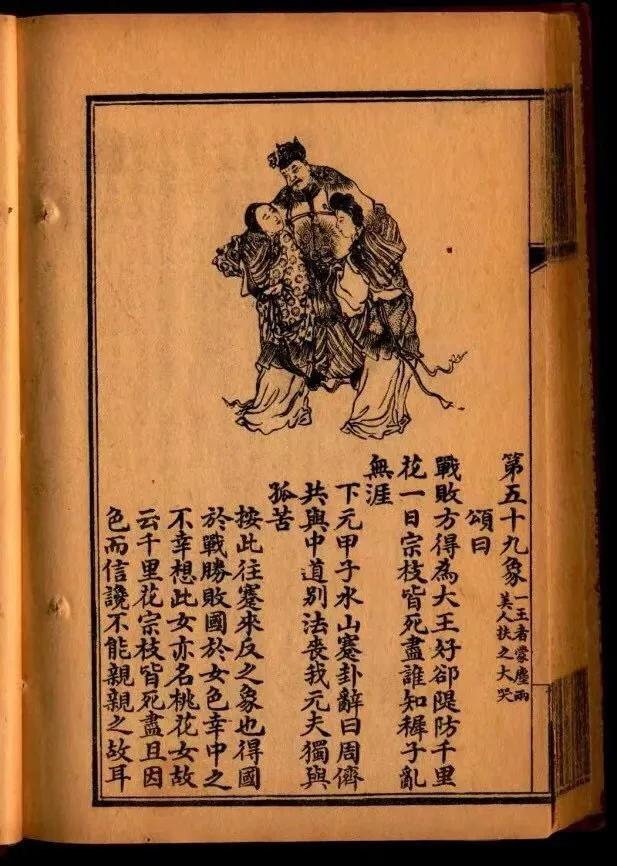 第五十九象 一王者蒙塵兩
美人扶之大哭
頌曰
戰敗方得為大王好卻隄防千里
花一日宗枝皆死盡誰知穉子亂
無涯
下元甲子水山蹇卦辭曰周儕
共與中道別法喪我元夫獨與
孤苦
按此往蹇來反之象也得國
於戰勝敗國於女色幸中之
不幸想此女亦名桃花女故
云千里花宗枝皆死盡且因
色而信讒不能親親之故耳